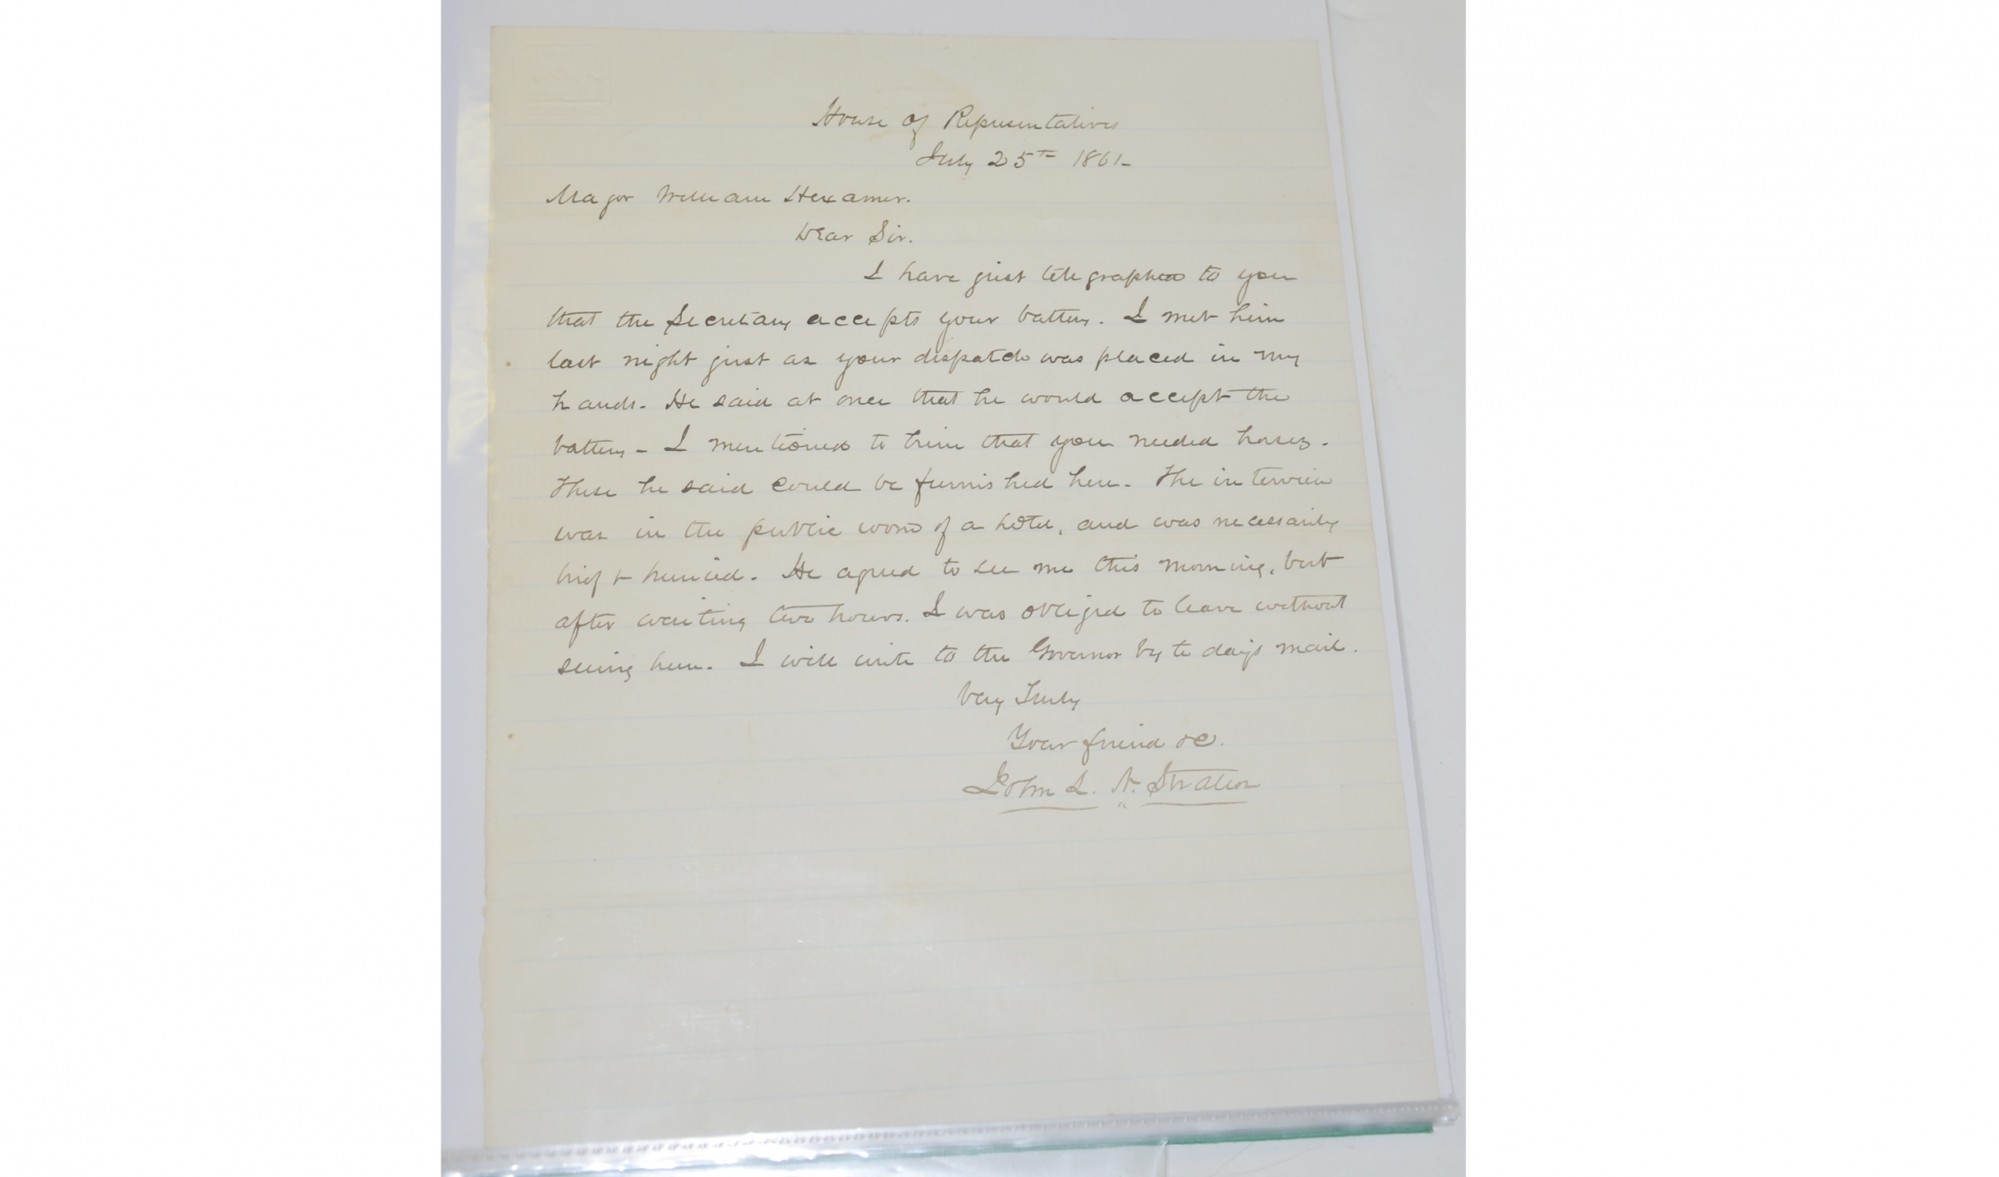 House of Representatives
July 25th 1861-
Major William Hexamer.
Dear Sir.
I have just telegraphed to you
that the Secretary accepts your battery. I met him
last night just as your dispatch was placed in my
hands. He said at once that he would accept the
battery - I mentioned to him that you needed horses.
These he said could be furnished here. The interview
was in the public room of a hotel, and was necessarily
brief & hurried. He agreed to see me this morning, but
after waiting two hours. I was obliged to leave without
seeing him. I will write to the Governor by to days mail.
Very Truly
Your friend &c.
John L. N. Stratton